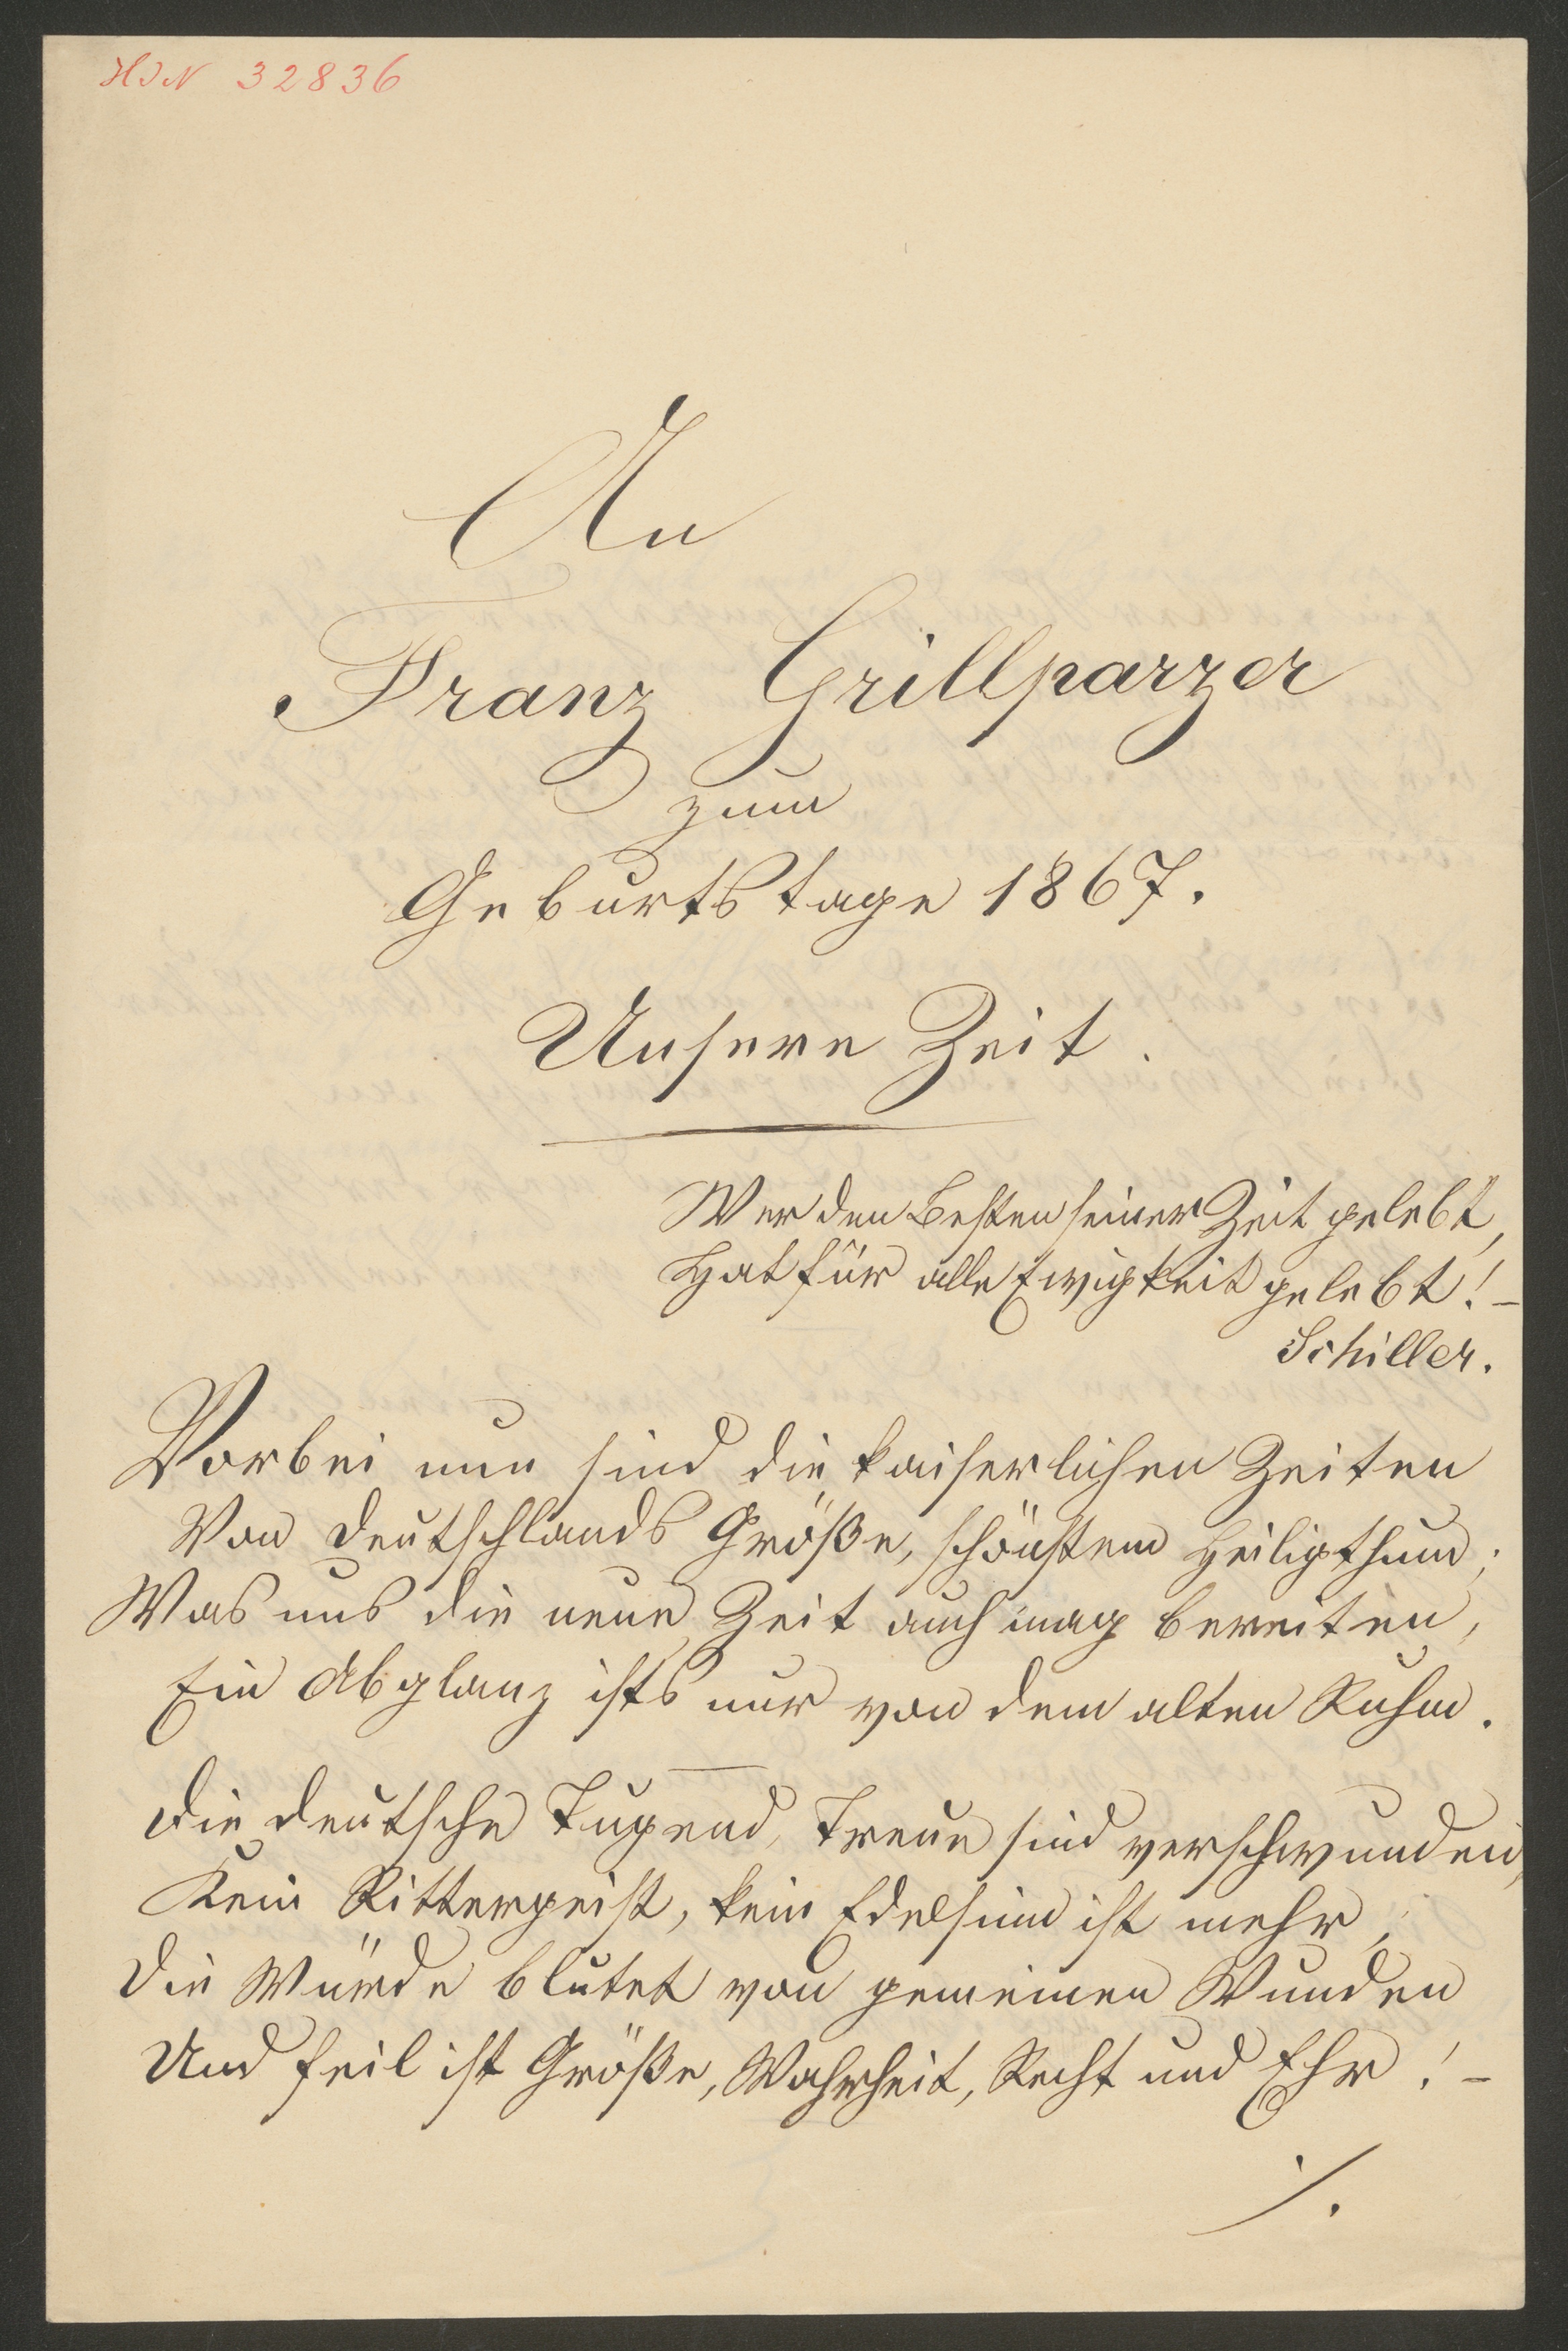 HIN 32836
An
Franz Grillparzer
zum
Geburtstage 1867.
Unsere Zeit.
Wer den Besten seiner Zeit gelebt,
Hat für alle Ewigkeit gelebt! –
Schiller.
Vorbei nun sind die kaiserlichen Zeiten
Von Deutschlands Größe, schönstem Heiligthum;
Was uns die neue Zeit auch mag bereiten,
Ein Abglanz ists nur von dem alten Ruhm.
Die deutsche Tugend, Treue sind verschwunden,
Kein Rittergeist, kein Edelsinn ist mehr,
Die Würde blutet von gemeinen Wunden
Und feil ist Größe, Wahrheit, Recht und Ehr! –
./.